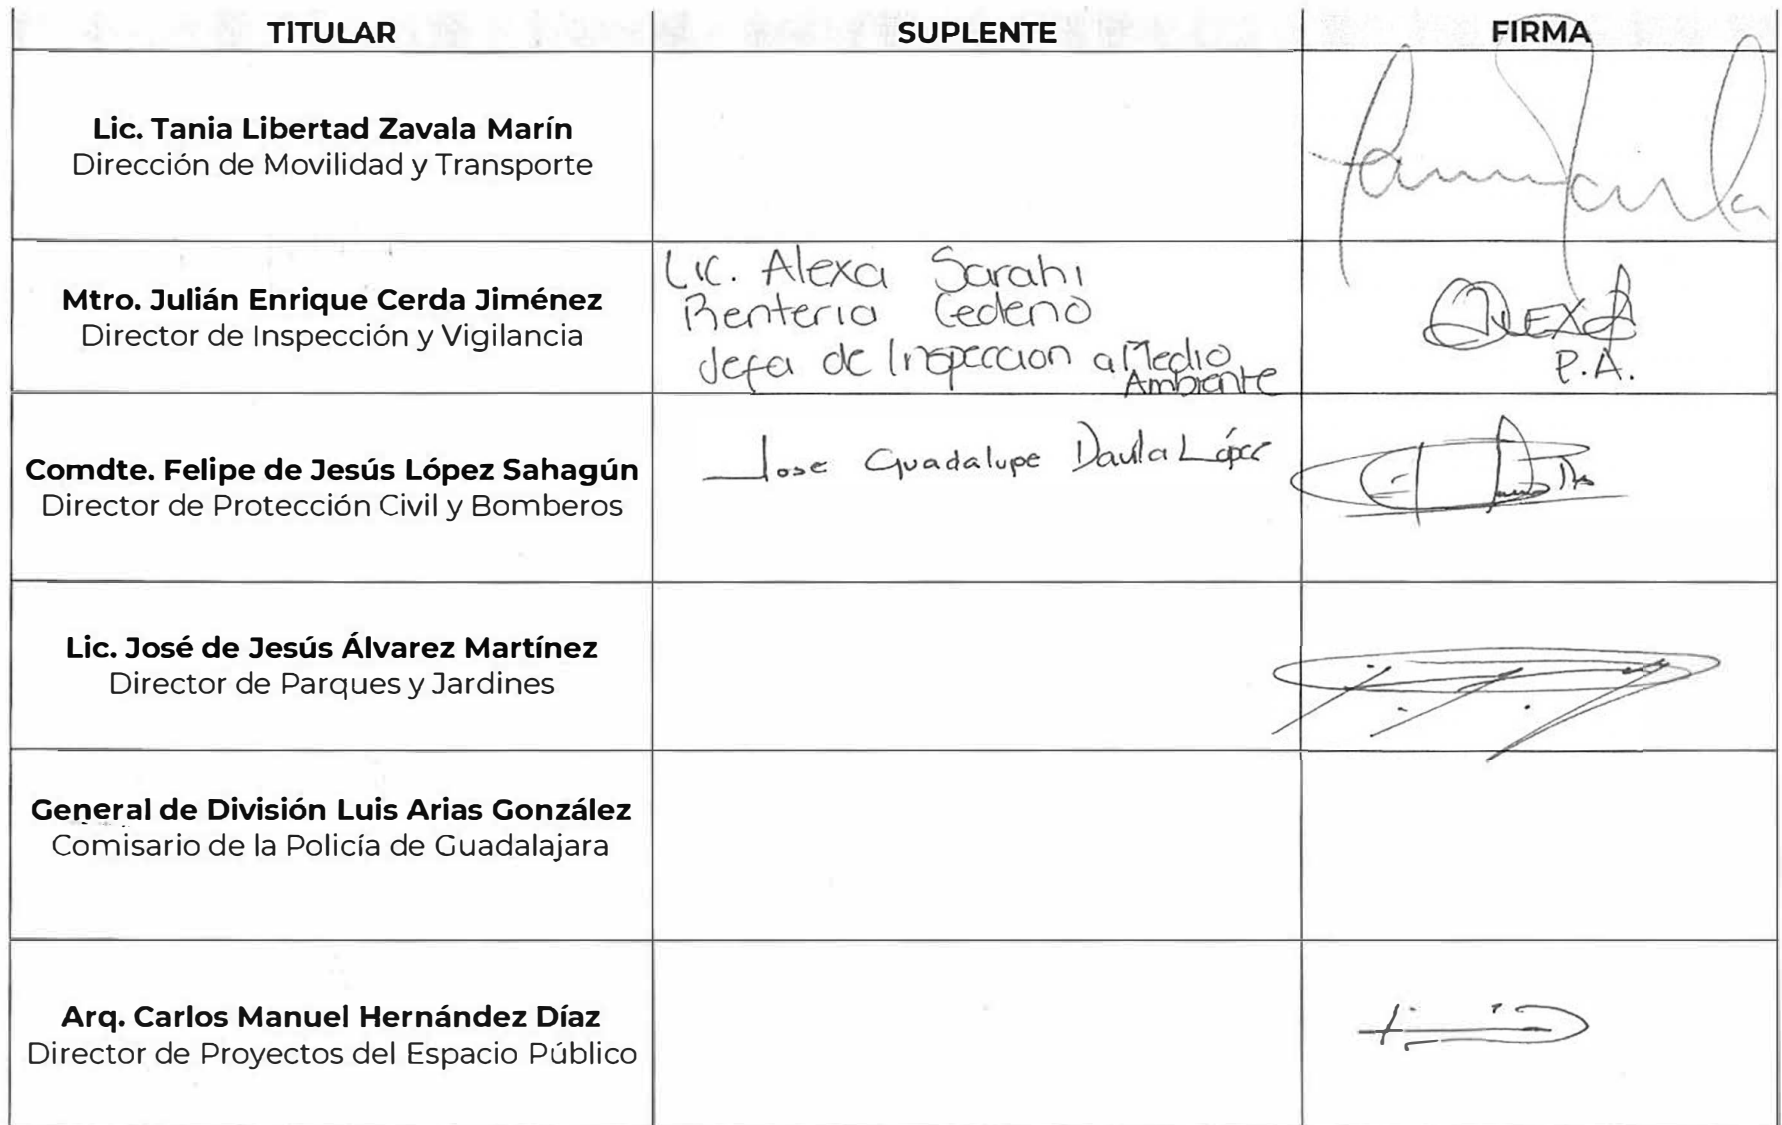 TITULAR SUPLENTE FIRMA
Lic. Tania Libertad Zavala Marín
Dirección de Movilidad y Transporte
Mtro. Julián Enrique Cerda Jiménez
Director de Inspección y Vigilancia
Lic. Alexa Sarahi
Renteria Cedeno
Jefa de Inspeccion a Medio
Ambiente
ALEXA
P.A.
Comdte. Felipe de Jesús López Sahagún
Director de Protección Civil y Bomberos
Jose Guadalupe Davila López
Lic. José de Jesús Álvarez Martínez
Director de Parques y Jardines
General de División Luis Arias González
Comisario de la Policía de Guadalajara
Arq. Carlos Manuel Hernández Díaz
Director de Proyectos del Espacio Público